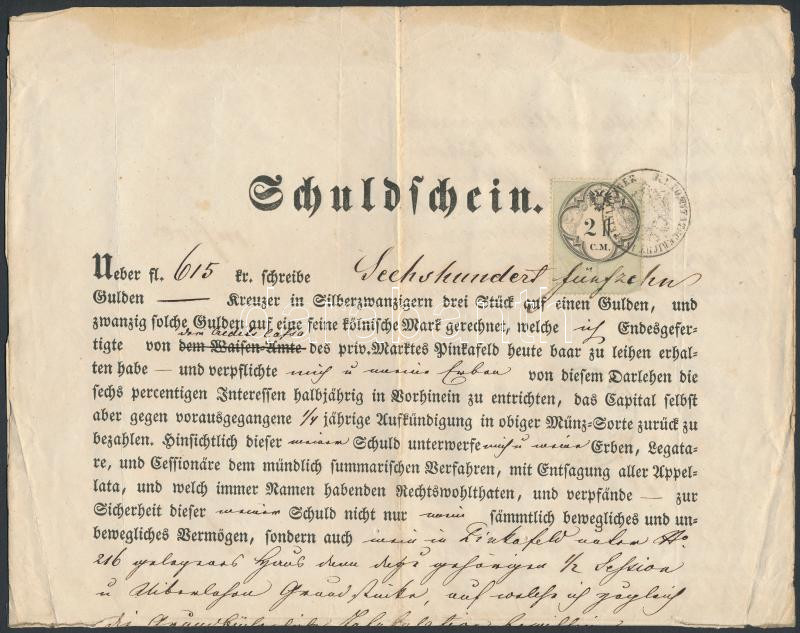 Schuldschein.
2 fl
C.M.
Ueber fl. 615 kr. schreibe Sechshundert fünfzehn
Gulden — Kreuzer in Silberzwanzigern drei Stück auf einen Gulden, und
zwanzig solche Gulden auf eine feine kölnische Mark gerechnet, welche ich Endesgefer-
tigte von dem Waisen-Amte des priv. Marktes Pinkafeld heute baar zu leihen erhal-
ten habe — und verpflichte mich u meine Erben von diesem Darlehen die
sechs percentigen Interessen halbjährig in Vorhinein zu entrichten, das Capital selbst
aber gegen vorausgegangene 1/4 jährige Aufkündigung in obiger Münz-Sorte zurück zu
bezahlen. Hinsichtlich dieser meiner Schuld unterwerfe mich u meine Erben, Legata-
re, und Cessionäre dem mündlich summarischen Verfahren, mit Entsagung aller Appel-
lata, und welch immer Namen habenden Rechtswohlthaten, und verpfände — zur
Sicherheit dieser meiner Schuld nicht nur mein sämmtlich bewegliches und un-
bewegliches Vermögen, sondern auch mein in Pinkafeld unter No.
216 gelegenes Haus dann dazu gehörigen 1/2 Session
u Überlehen Grundstücke, auf welche ich zugleich